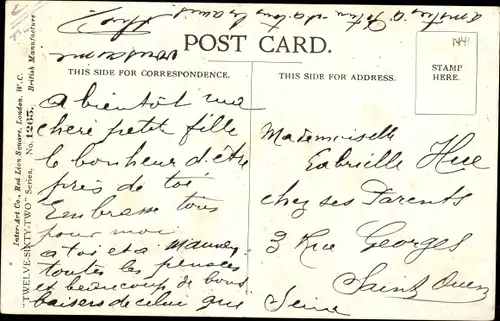 POST CARD.
THIS SIDE FOR CORRESPONDENCE.
THIS SIDE FOR ADDRESS.
STAMP
HERE.
1441
A bientôt ma
chère petit fille
le bonheur d'être
près de toi
Embrasse tous
pour moi
a toi et a
toutes les pensées
et beaucoup de bons
baisers de celui que
Mademoiselle
Gabrielle Hue
chez ses Parents
3 Rue Georges
Saint Ouen
Seine
Inter-Art Co., Red Lion Square, London, W.C.
British Manufacture
"TWELVE-SIXTY-TWO" Series.
No. 1265.